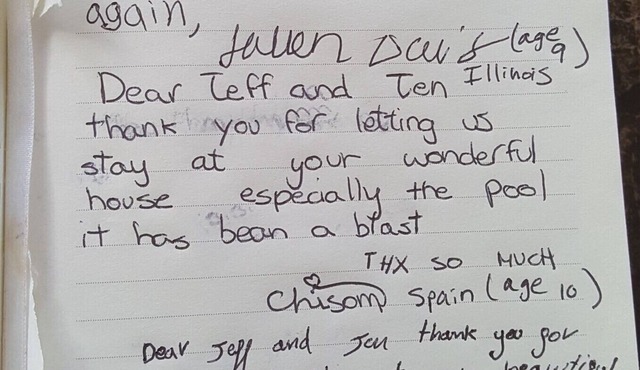 again,
Davis (age 9)
Illinois
Dear Jeff and Jen
thank you for letting us
stay at your wonderful
house especially the pool
it has bean a blast
THX SO MUCH
Chisom Spain (age 10)
Dear Jeff and Jen thank you for
beautiful